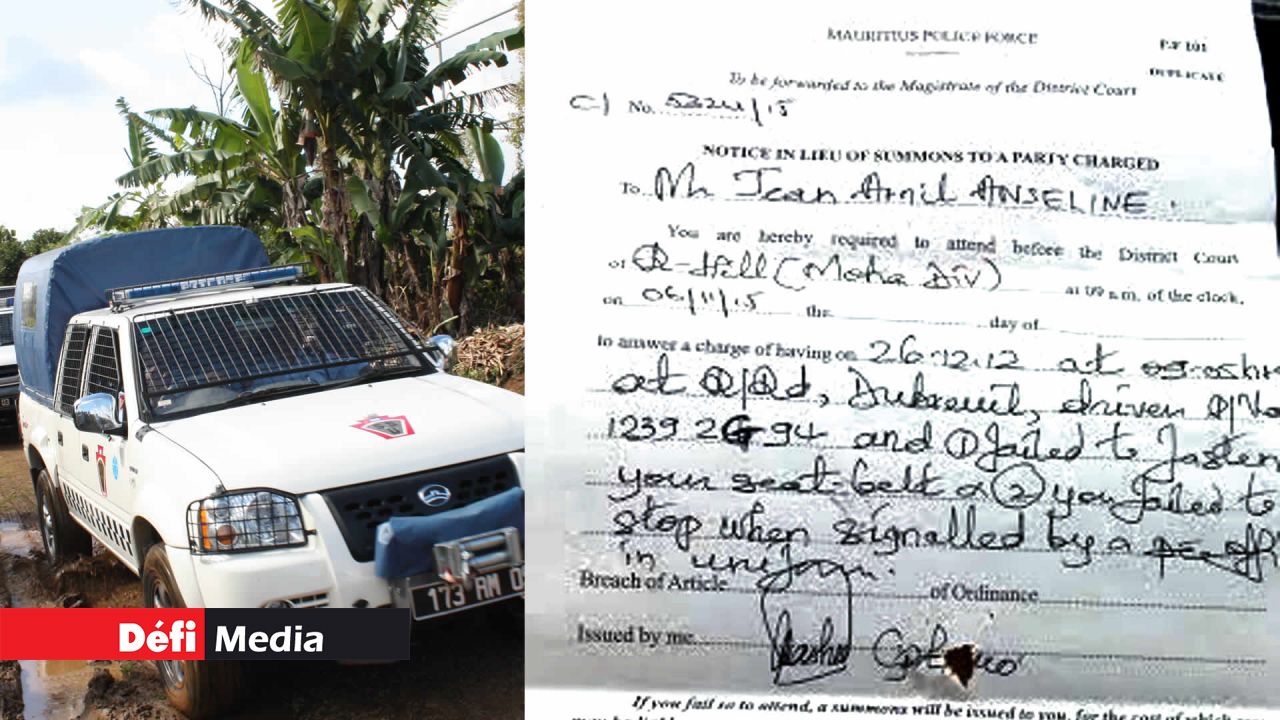 MAURITIUS POLICE FORCE
P.F 101
DUPLICATE
To be forwarded to the Magistrate of the District Court
No. 5324/15
NOTICE IN LIEU OF SUMMONS TO A PARTY CHARGED
To Mr Jean ANSELINE
You are hereby required to attend before the District Court
of R-Hill (Moka Div) at 09 a.m. of the clock,
on 06/11/15 the day of
to answer a charge of having on 26.12.12 at
at Dubreuil, driven
1239 ZG 94 and ① failed to fasten
your seat-belt & ② you failed to
stop when signalled by a
in uniform.
Breach of Article of Ordinance
Issued by me
If you fail so to attend, a summons will be issued to you, for the cost of which
POLICE
173 RM 0
Défi Media